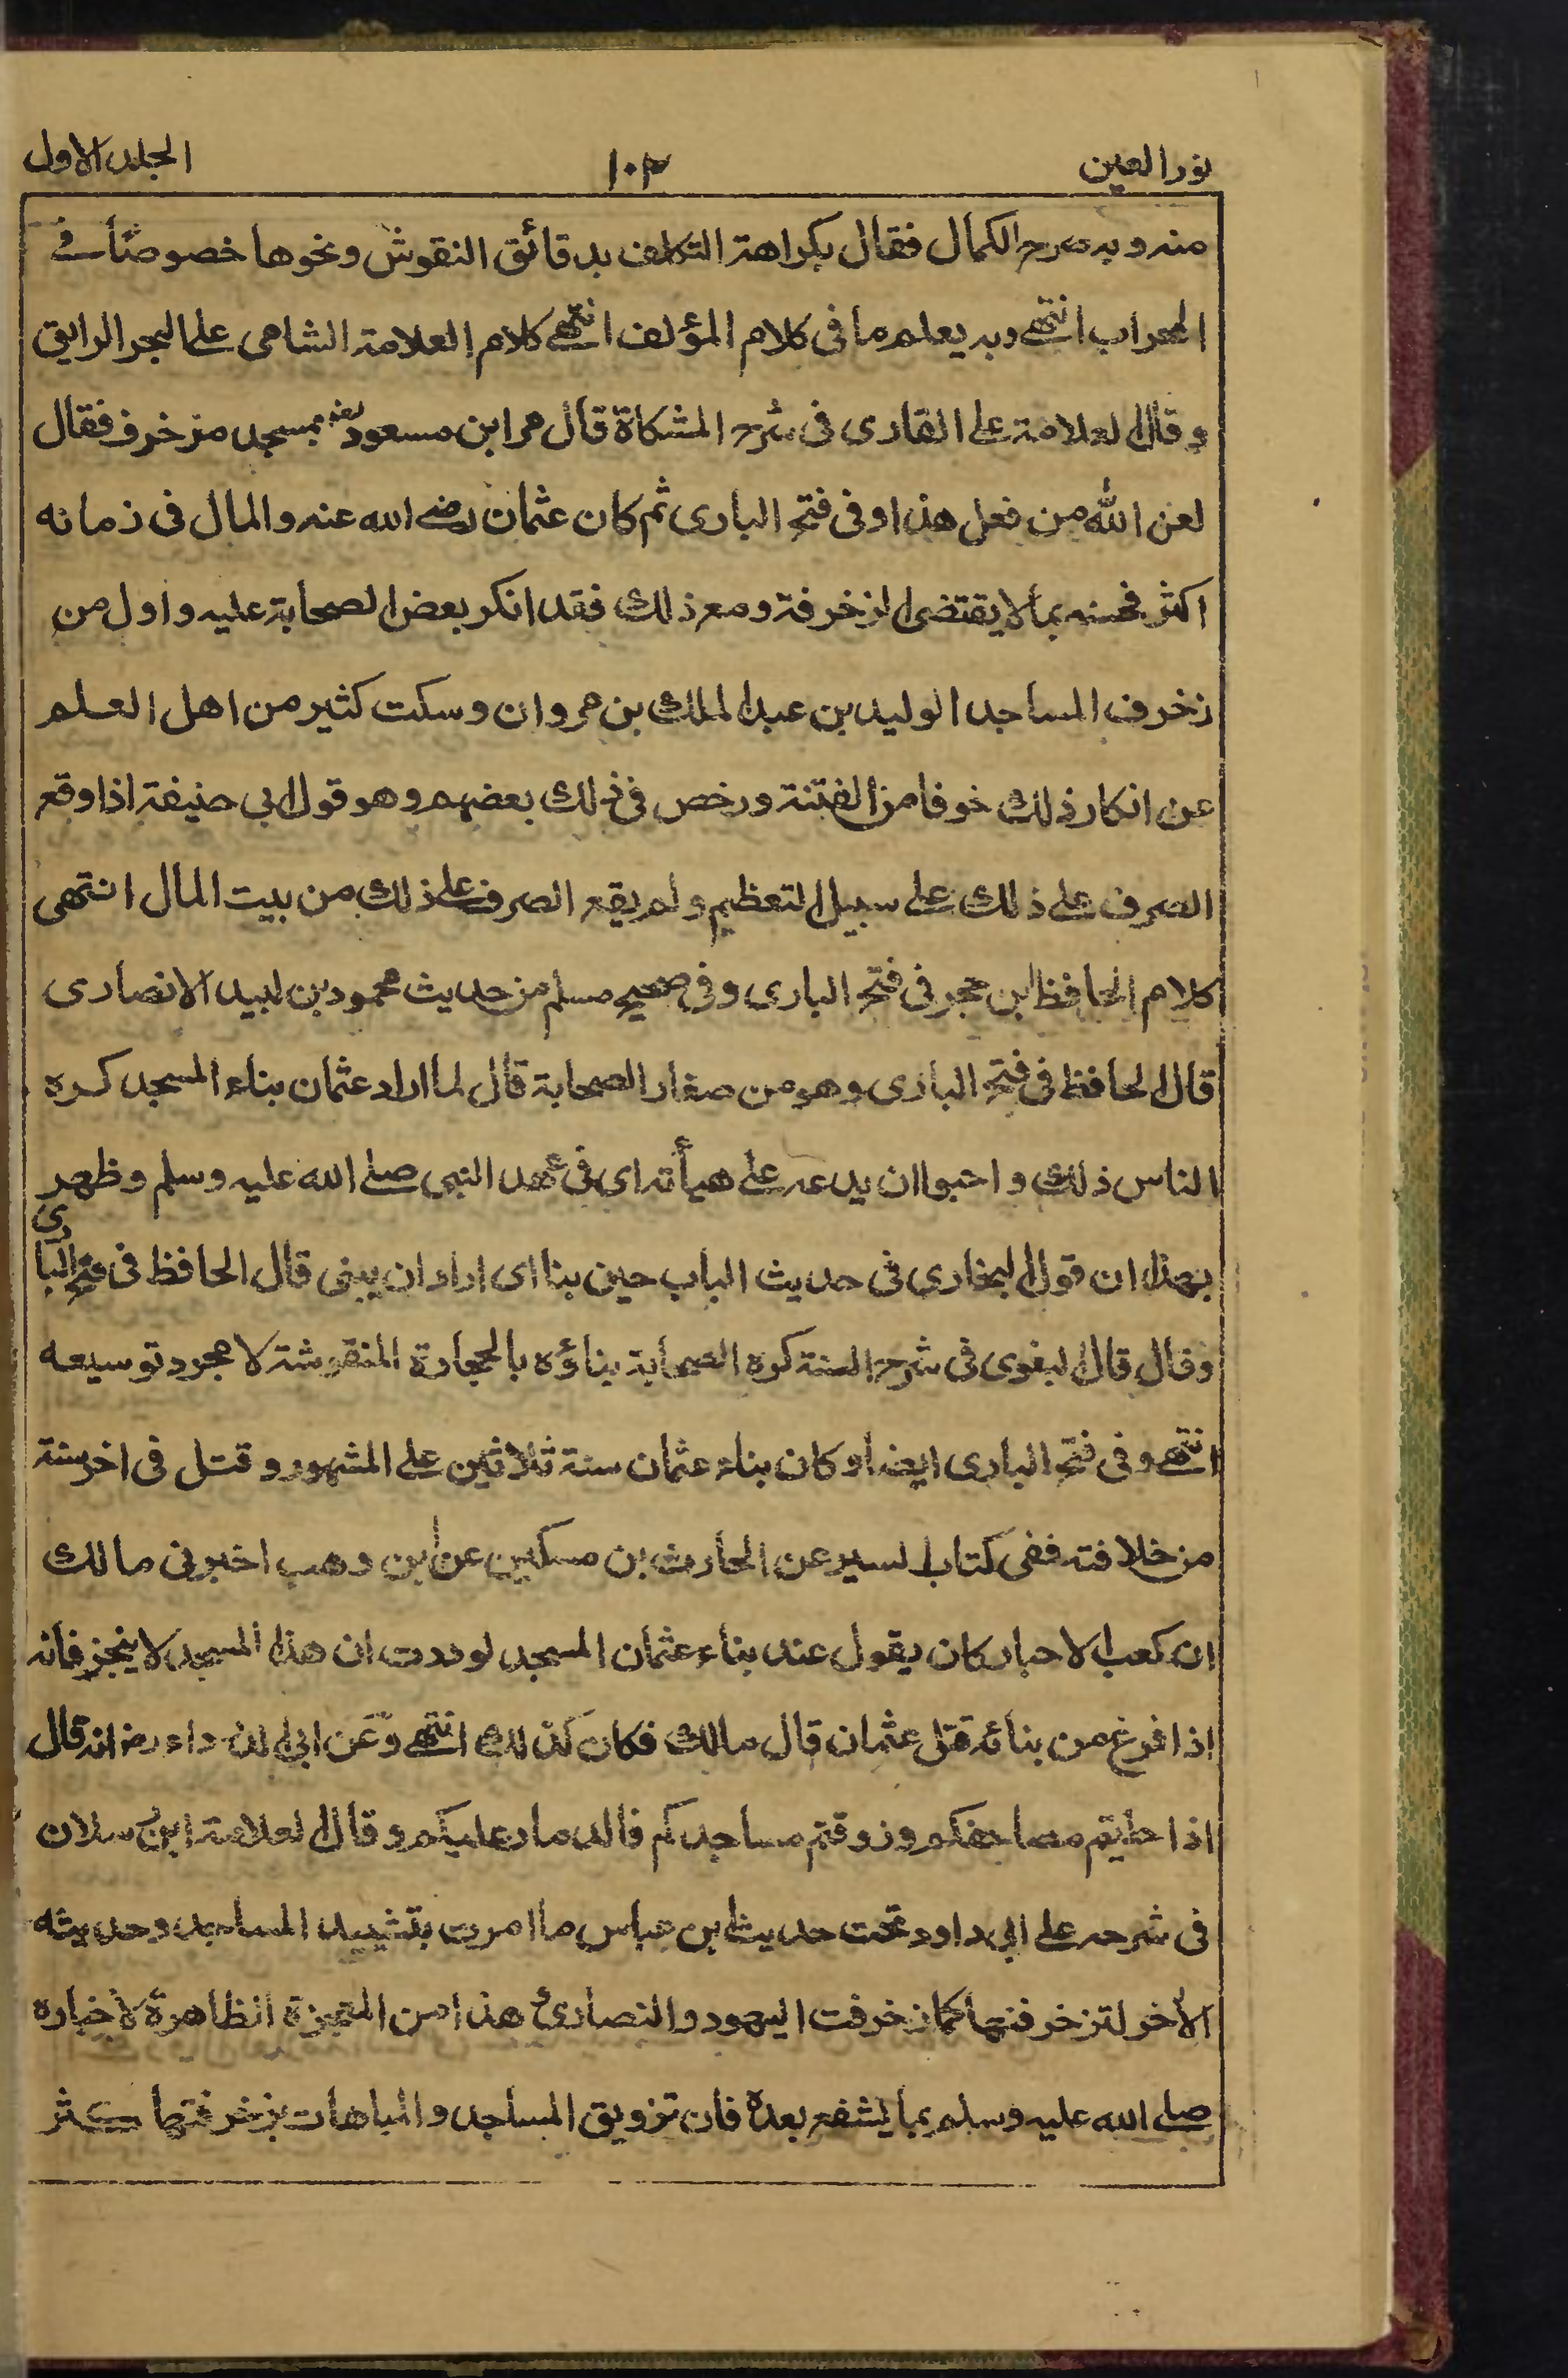 نور العين ١٠٣ الجلد الاول
منه وبه صرح الكمال فقال بكراهة التكلف بدقائق النقوش ونحوها خصوصًا في
المحراب انتهى وبه يعلم ما في كلام المؤلف انتهى كلام العلامة الشامي على البحر الرايق
وقال العلامة على القاري في شرح المشكاة قال مر ابن مسعود بمسجد مزخرف فقال
لعن الله من فعل هذا وفي فتح الباري ثم كان عثمان رضي الله عنه والمال في زمانه
اكثر فحسنه بما لا يقتضي الزخرفة ومع ذلك فقد انكر بعض الصحابة عليه واول من
زخرف المساجد الوليد بن عبد الملك بن مروان وسكت كثير من اهل العلم
عن انكار ذلك خوفا من الفتنة ورخص في ذلك بعضهم وهو قول ابي حنيفة اذا وقع
الصرف على ذلك على سبيل التعظيم ولم يقع الصرف على ذلك من بيت المال انتهى
كلام الحافظ ابن حجر في فتح الباري وفي صحيح مسلم من حديث محمود بن لبيد الانصاري
قال الحافظ في فتح الباري وهو من صغار الصحابة قال لما اراد عثمان بناء المسجد كره
الناس ذلك واحبوا ان يدعه على هيأته اي في عهد النبي صلى الله عليه وسلم وظهر
بهذا ان قول البخاري في حديث الباب حين بنا اي اراد ان يبني قال الحافظ في فتح الباري
وقال قال البغوي في شرح السنة كره الصحابة بناؤه بالحجارة المنقوشة لا مجرد توسيعه
انتهى وفي فتح الباري ايضا وكان بناء عثمان سنة ثلاثين على المشهور وقتل في اخر سنة
من خلافته ففي كتاب السير عن الحارث بن مسكين عن ابن وهب اخبرني مالك
ان كعب الاحبار كان يقول عند بناء عثمان المسجد لوددت ان هذا المسجد لا ينجز فانه
اذا فرغ من بنائه قتل عثمان قال مالك فكان كذلك انتهى وعن ابي الدرداء رض انه قال
اذا حليتم مصاحفكم وزوقتم مساجدكم فالدمار عليكم وقال العلامة ابن رسلان
في شرحه على ابي داود تحت حديث ابن عباس ما امرت بتشييد المساجد وحديثه
الآخر لتزخرفنها كما زخرفت اليهود والنصارى هذا من المعجزة الظاهرة لأخباره
صلى الله عليه وسلم بما يشفع بعده فان تزويق المساجد والمباهات بزخرفتها كثر